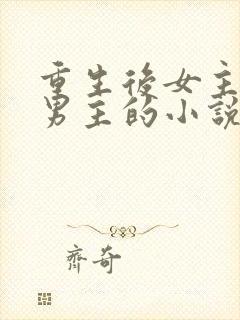 重生後女主
男主的小說
齊奇